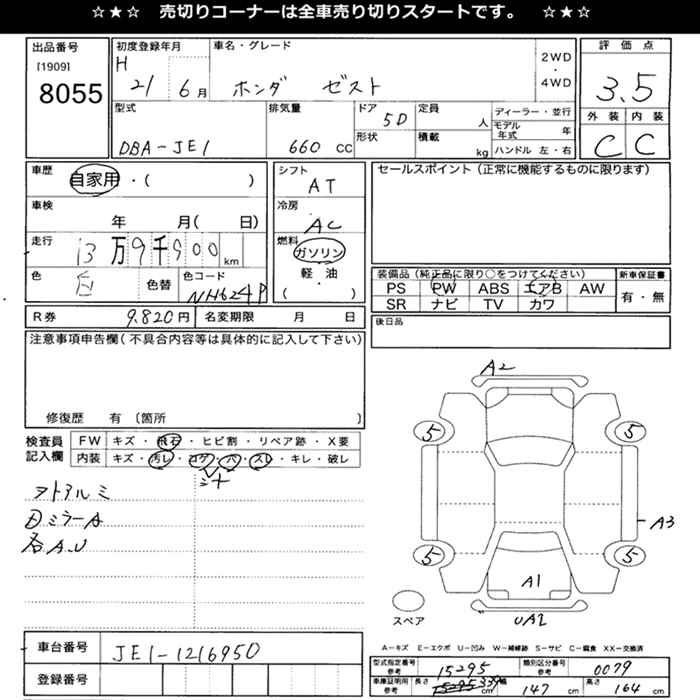 ☆★☆ 売切りコーナーは全車売り切りスタートです。 ☆★☆
出品番号
[1909]
8055
初度登録年月
H
21 6月
車名・グレード
ホンダ ゼスト
2WD
・
4WD
評価点
3.5
外装 内装
C C
型式
DBA-JE1
排気量
660 CC
ドア
5D
形状
定員
人
積載
kg
ディーラー・並行
モデル年式 年
ハンドル 左・右
車歴
自家用・( )
車検
年 月( 日)
走行
13万9千900km
色
色替
色コード
NH624P
シフト
AT
冷房
AC
燃料
ガソリン
軽・油
( )
セールスポイント(正常に機能するものに限ります)
装備品(純正品に限り○をつけてください)
PS PW ABS エアB AW
SR ナビ TV カワ
新車保証書
有・無
R券 9.820円
名変期限 月 日
後日品
注意事項申告欄(不具合内容等は具体的に記入して下さい)
修復歴 有 〔箇所 〕
検査員記入欄
FW キズ・飛石・ヒビ割・リペア跡・X要
内装 キズ・汚レ・コゲ・穴・スレ・キレ・破レ
シート
ヲトアルミ
ミラーA
各A.U
A2
5 5
A3
5 5
A1
UA2
スペア
A-キズ E-エクボ U-凹み W-補修跡 S-サビ C-腐食 XX-交換済
車台番号 JE1-1216950
登録番号
型式指定番号参考 15295
類別区分番号参考 0079
車庫証明用参考 339cm
幅 147cm
高さ 164cm